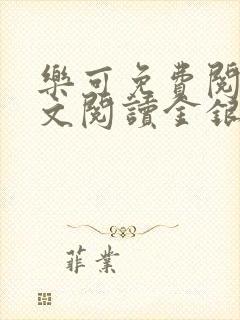 樂可免費閱
文閱讀金銀
菲業